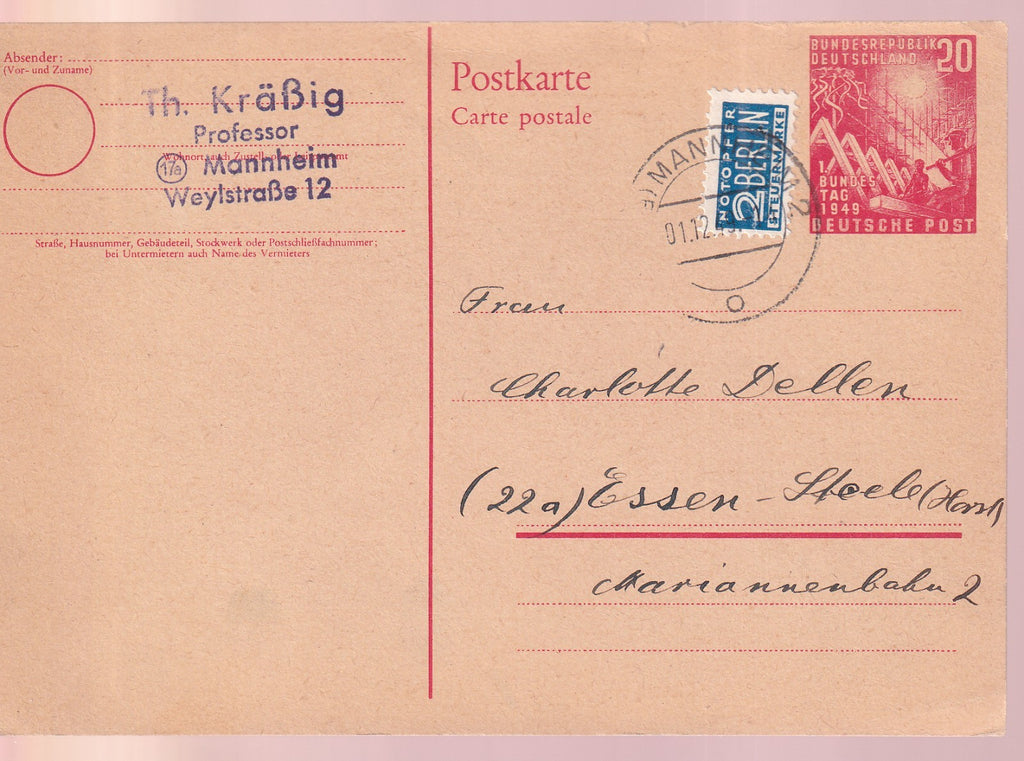 Absender:
(Vor- und Zuname)
Th. Kräßig
Professor
(17a) Mannheim
Weylstraße 12
Straße, Hausnummer, Gebäudeteil, Stockwerk oder Postschließfachnummer;
bei Untermietern auch Name des Vermieters
Postkarte
Carte postale
NOTOPFER
2 BERLIN
STEUERMARKE
MANNHEIM 2
01.12.
BUNDESREPUBLIK
DEUTSCHLAND
20
1.
BUNDES
TAG
1949
DEUTSCHE POST
Frau
Charlotte Dellen
(22a) Essen - Steele (Horst)
Mariannenbahn 2